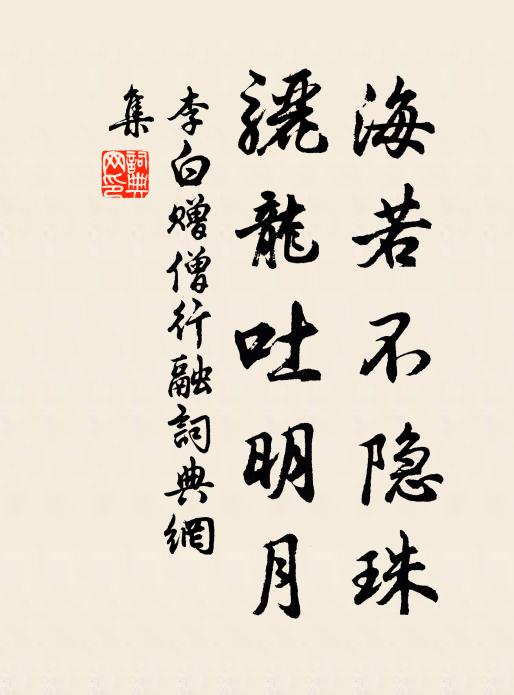 海若不隐珠
驪龍吐明月
李白赠僧行融詞典網
集
詞典網印